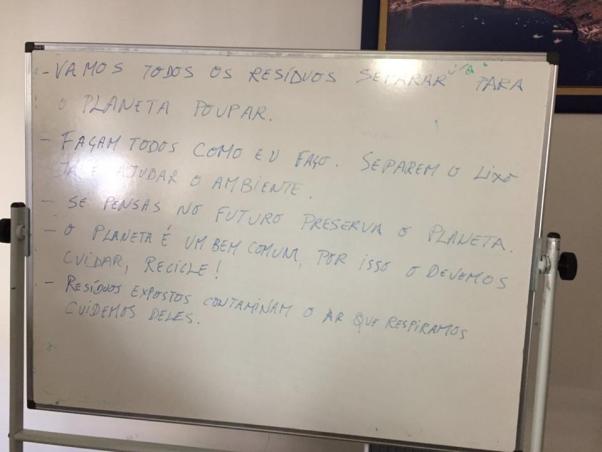 - VAMOS TODOS OS RESÍDUOS SEPARAR PARA
O PLANETA POUPAR.
- FAÇAM TODOS COMO EU FAÇO. SEPAREM O LIXO
E AJUDAR O AMBIENTE.
- SE PENSAS NO FUTURO PRESERVA O PLANETA.
- O PLANETA É UM BEM COMUM, POR ISSO O DEVEMOS
CUIDAR, RECICLE!
- RESÍDUOS EXPOSTOS CONTAMINAM O AR QUE RESPIRAMOS
CUIDEMOS DELES.